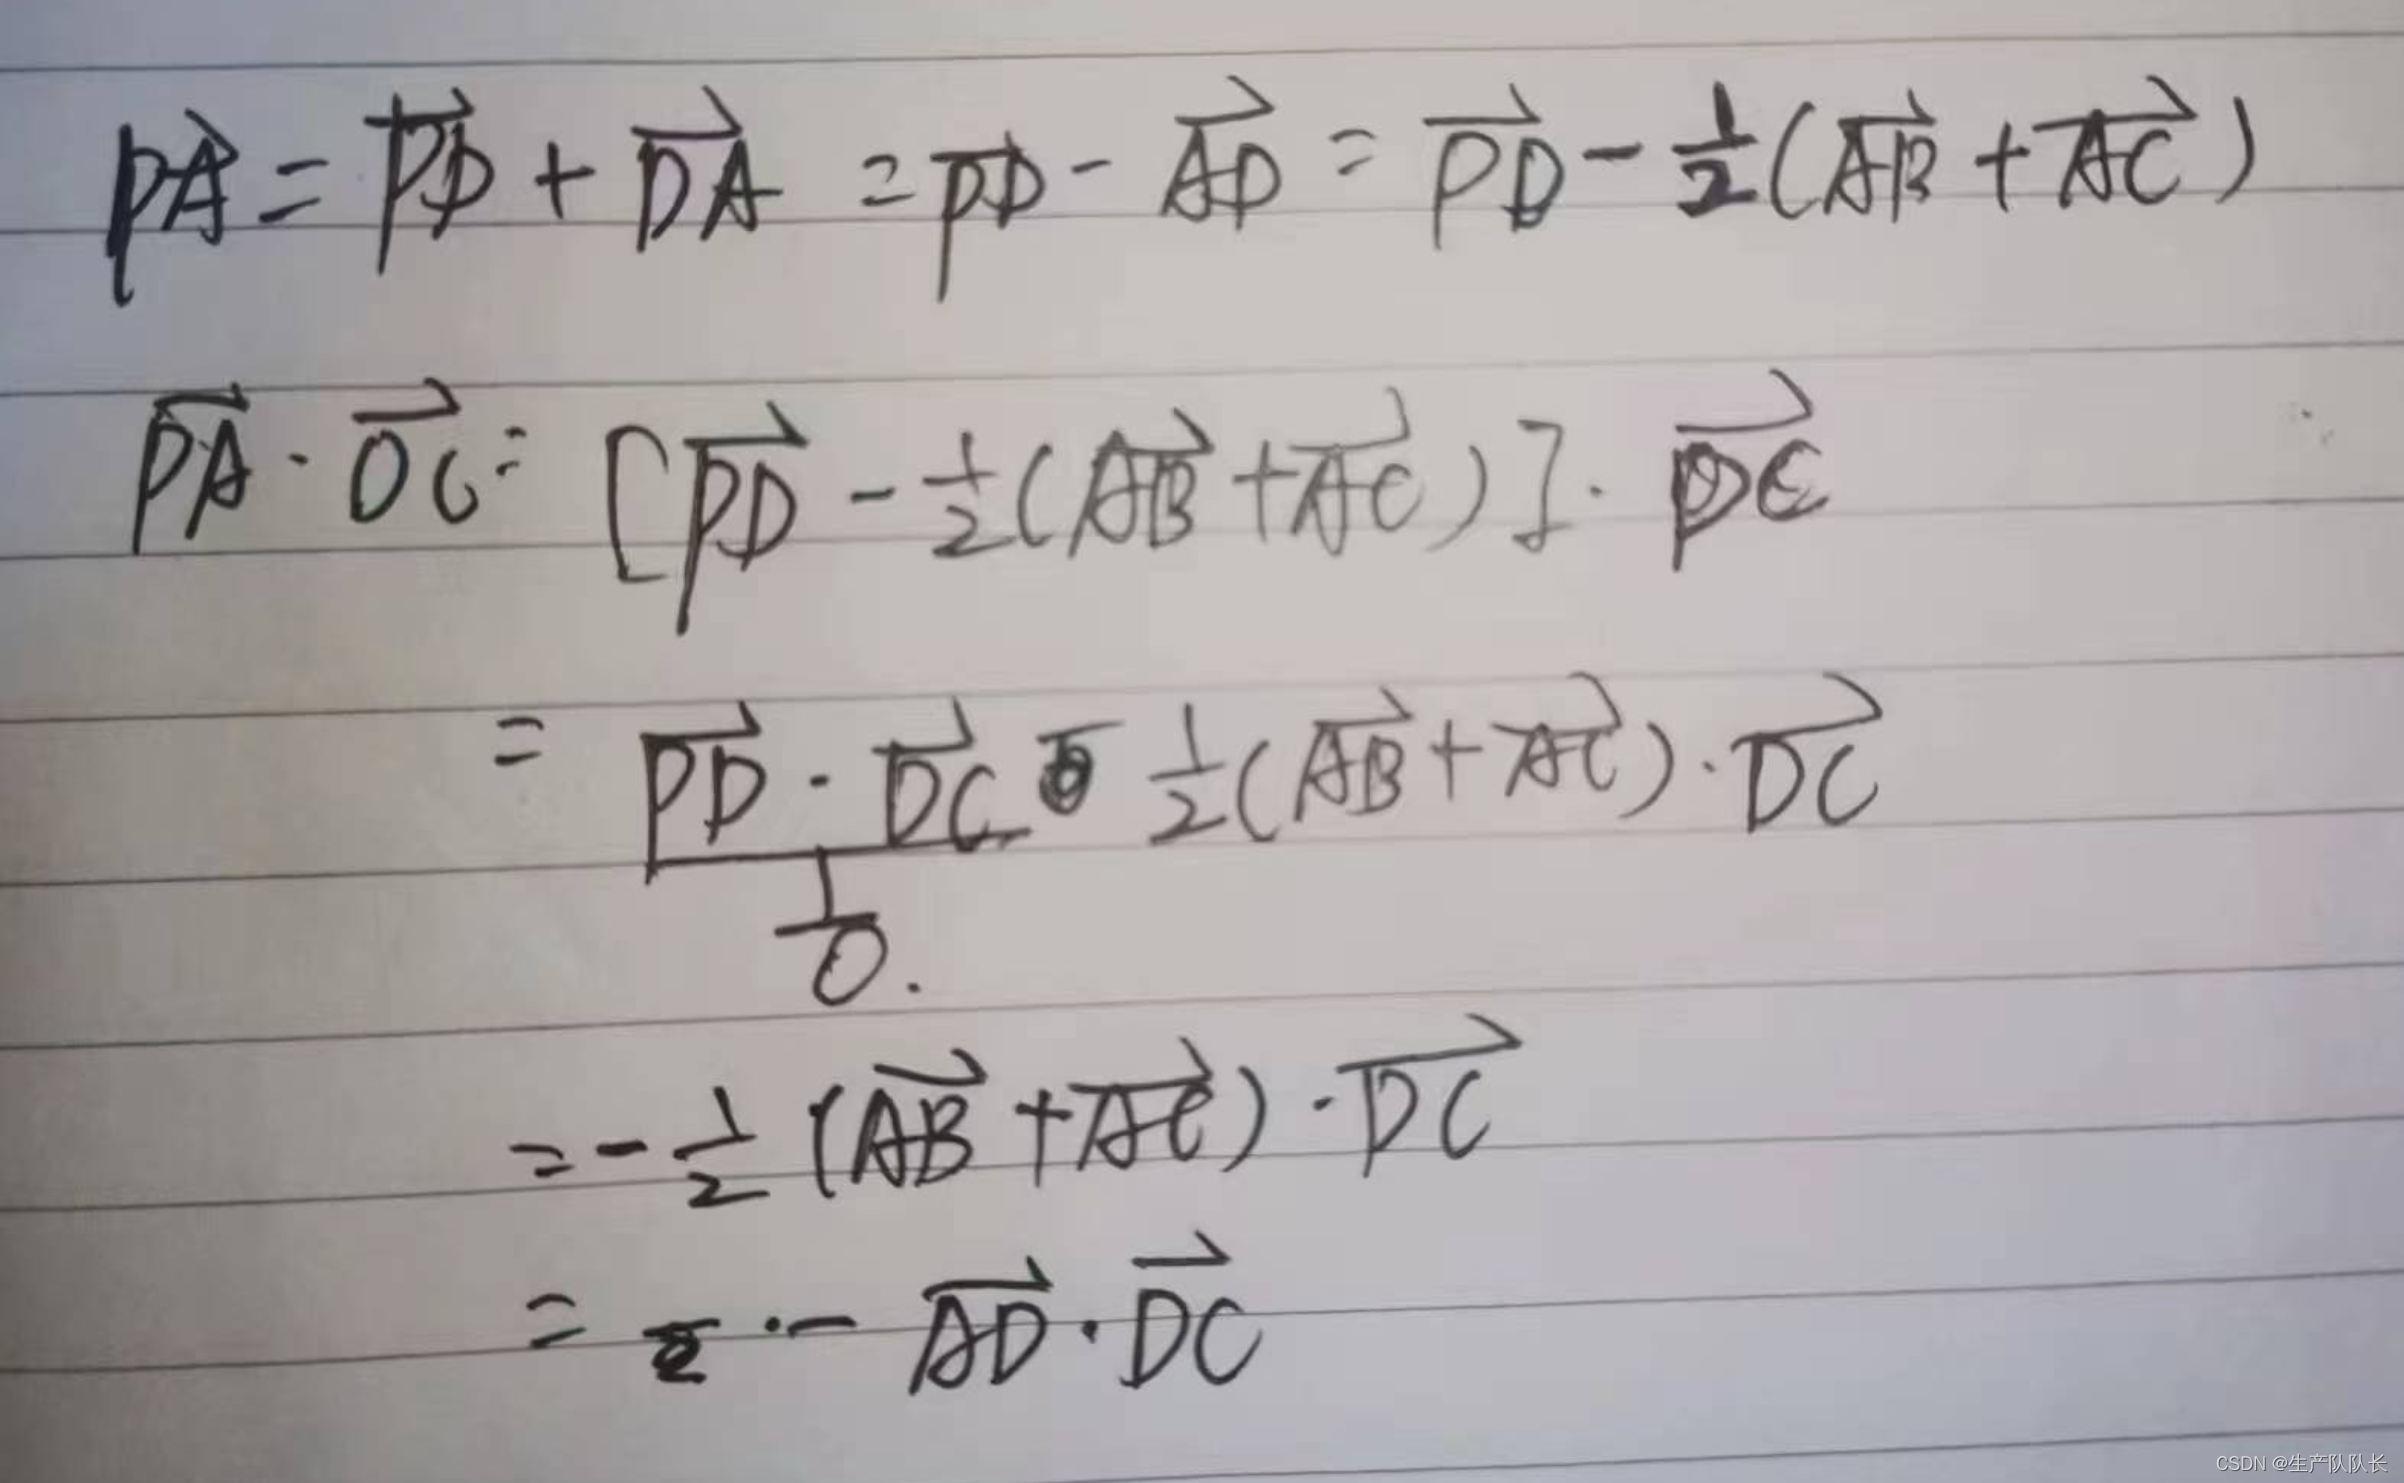 PA⃗ = PD⃗ + DA⃗ = PD - AD⃗ = PD⃗ - 1/2 (AB⃗ + AC⃗)
PA⃗ · DC⃗ = [PD⃗ - 1/2 (AB⃗ + AC⃗)] · DC⃗
= PD⃗ · DC⃗ - 1/2 (AB⃗ + AC⃗) · DC⃗
0.
= - 1/2 (AB⃗ + AC⃗) · DC⃗
= · - AD⃗ · DC⃗
CSDN @生产队队长